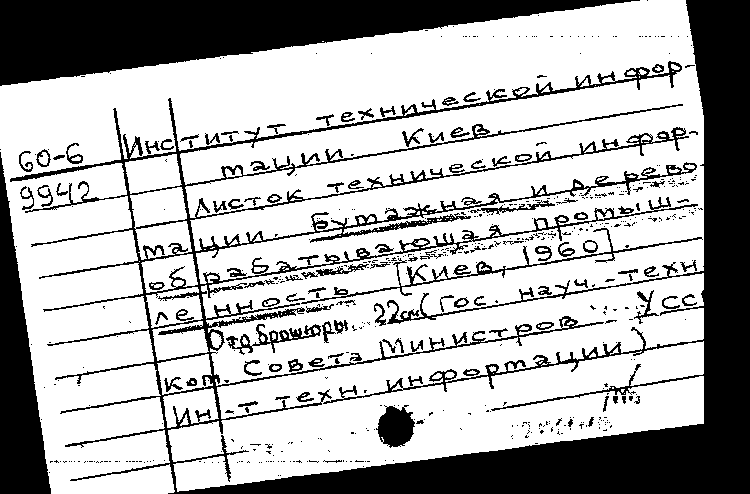 60-6
9942
Институт технической инфор-
мации. Киев.
Листок технической инфор-
мации. Бумажная и дерево-
обрабатывающая промыш-
ленность. [Киев, 1960].
Отд. брошюры. 22см (Гос. науч.-техн
ком. Совета Министров УССР
Ин-т техн. информации).